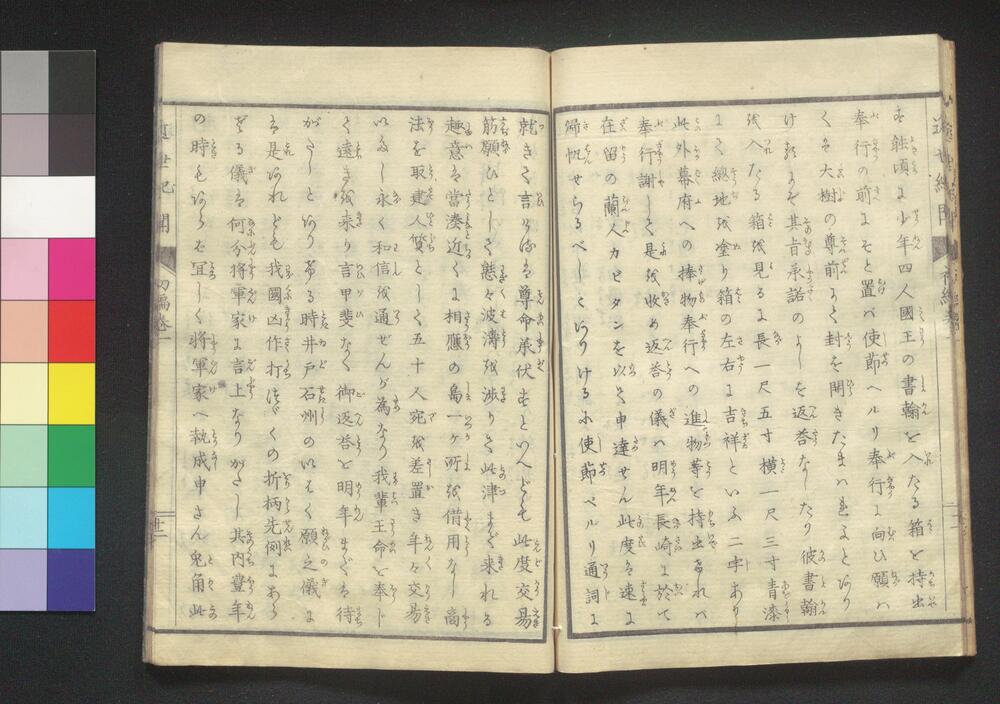 其砌頃に少年四人國王の書翰を入たる箱を持出
奉行の前にそと置バ使節ヘルリ奉行に向ひ願ハ
くハ大樹の尊前にて封を開きたまはれよとあり
けれバ其旨承諾のよしを返答なしたり彼書翰
を入たる箱を見るに長一尺五寸横一尺三寸青漆
にて総地を塗り箱の左右に吉祥といふ二字あり
此外幕府への捧物奉行への進物等を持出けれバ
奉行謝して是を收め返答の儀ハ明年長崎に於て
在留の蘭人カピタンを以て申達せん此度ハ速に
歸帆せらるべしとありけるに使節ペルリ通詞に
就きて言けるハ尊命承伏すといへども此度交易
筋願ひとして態々波濤を渉りて此津まで来れる
趣意ハ當湊近くに相應の島一ヶ所を借用なし商
法を取建人質として五十人宛を差置き年々交易
以なし永く和信を通ぜんが為なり我輩王命を奉じ
て遠きを来り言甲斐なく御返答を明年まで待
がたしとありける時井戸石州のいはく願之儀ハ
さる是あれども我國凶作打つゞくの折柄先例にあら
ざる儀ハ何分将軍家に言上なりがたし其内豊年
の時もあらバ宜しく将軍家へ執成申さん兎角此
近世紀聞
初編巻一
廿二